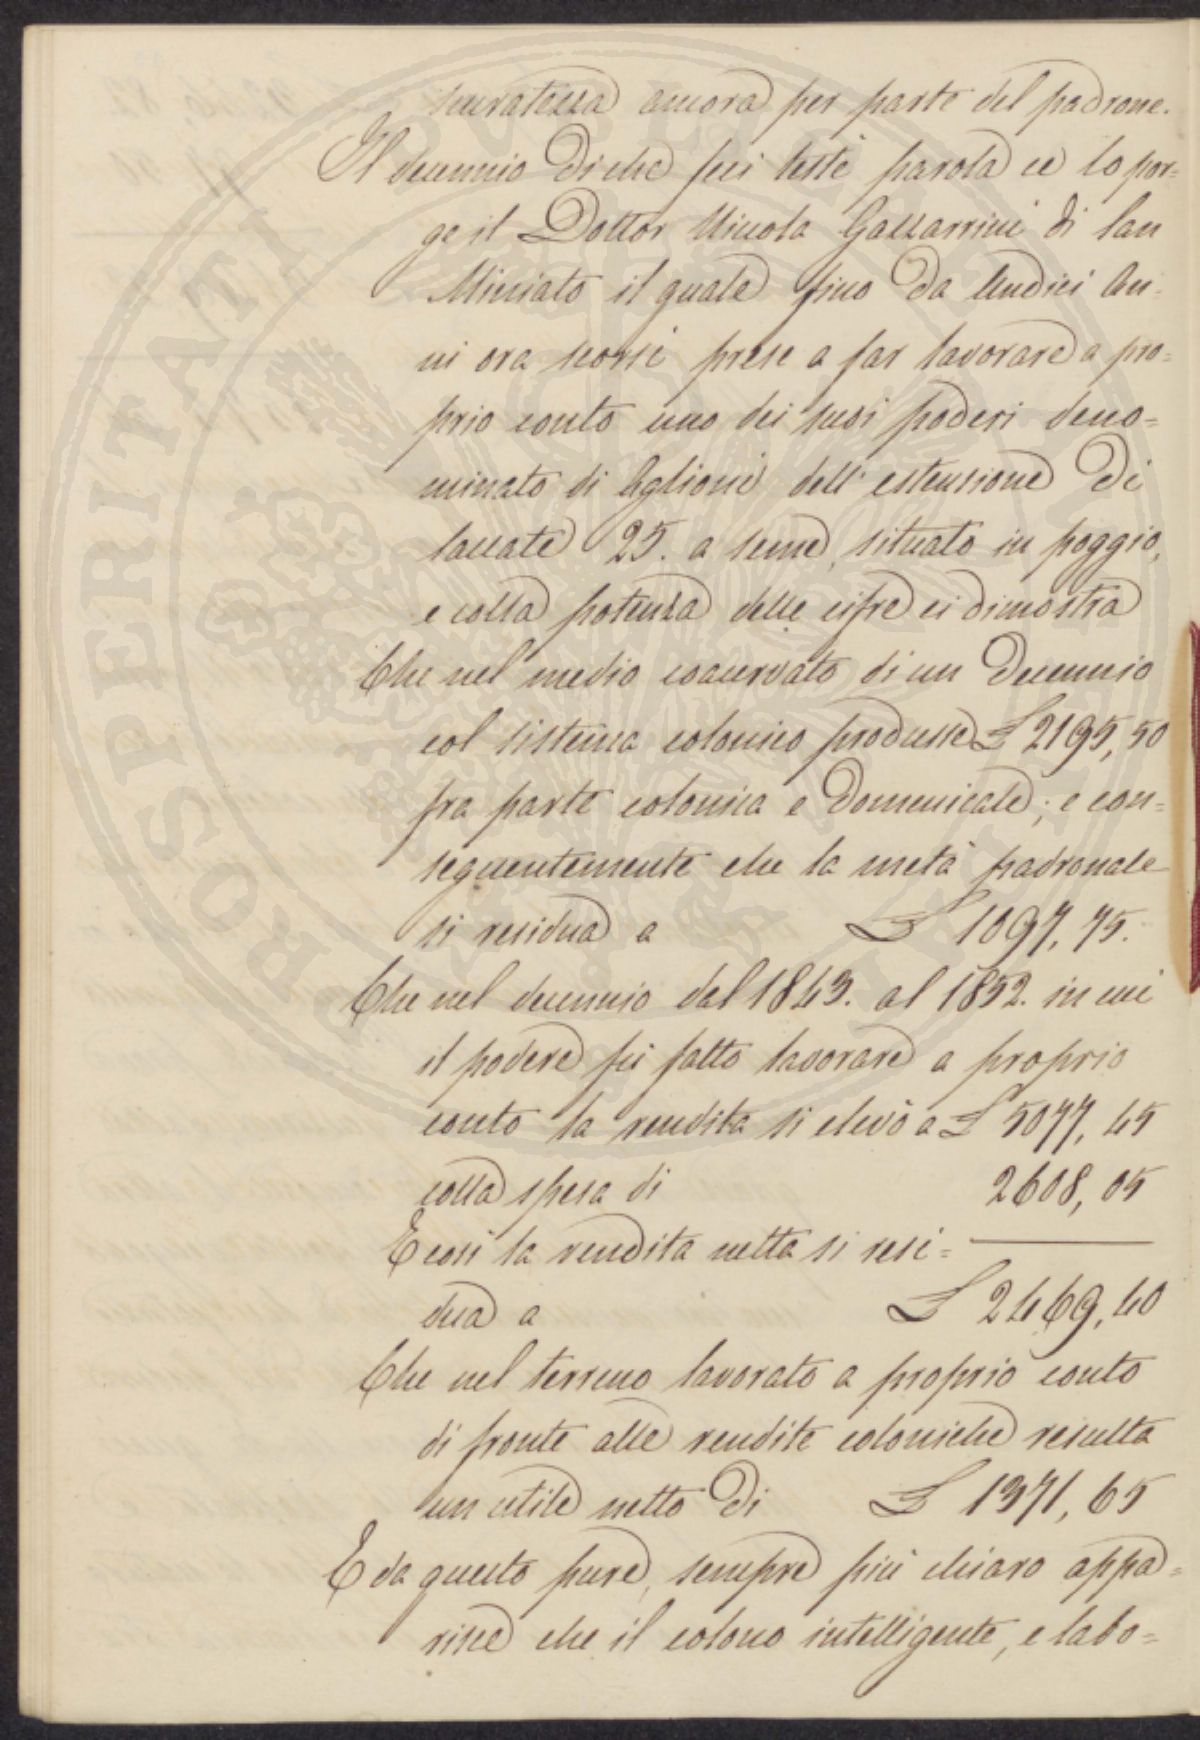 scuratezza ancora per parte del padrone.
Il decennio di che feci testè parola ce lo por=
ge il Dottor Niccola Gazzarrini di San
Miniato il quale fino da undici an=
ni ora scorsi prese a far lavorare a pro=
prio conto uno dei suoi poderi deno=
minato di Aglioni dell'estensione di
saccate 25. a seme, situato in poggio,
e colla potenza delle cifre ci dimostra
Che nel medio coacervato di un Decennio
col sistema colonico produsse £ 2195,50
fra parte colonica e Domenicale; e con=
seguentemente che la metà padronale
si residua a £ 1097,75.
Che nel decennio dal 1843. al 1852. in cui
il podere fù fatto lavorare a proprio
conto la rendita si elevò a £ 5077,45
colla spesa di 2608,05
E così la rendita netta si resi=
dua a £ 2469,40
Che nel terreno lavorato a proprio conto
di fronte alle rendite coloniche resulta
un utile netto di £ 1371,65
E da questo pure, sempre più chiaro appa=
risce che il colono intelligente, e labo=
PROSPERITATI PUBLICAE